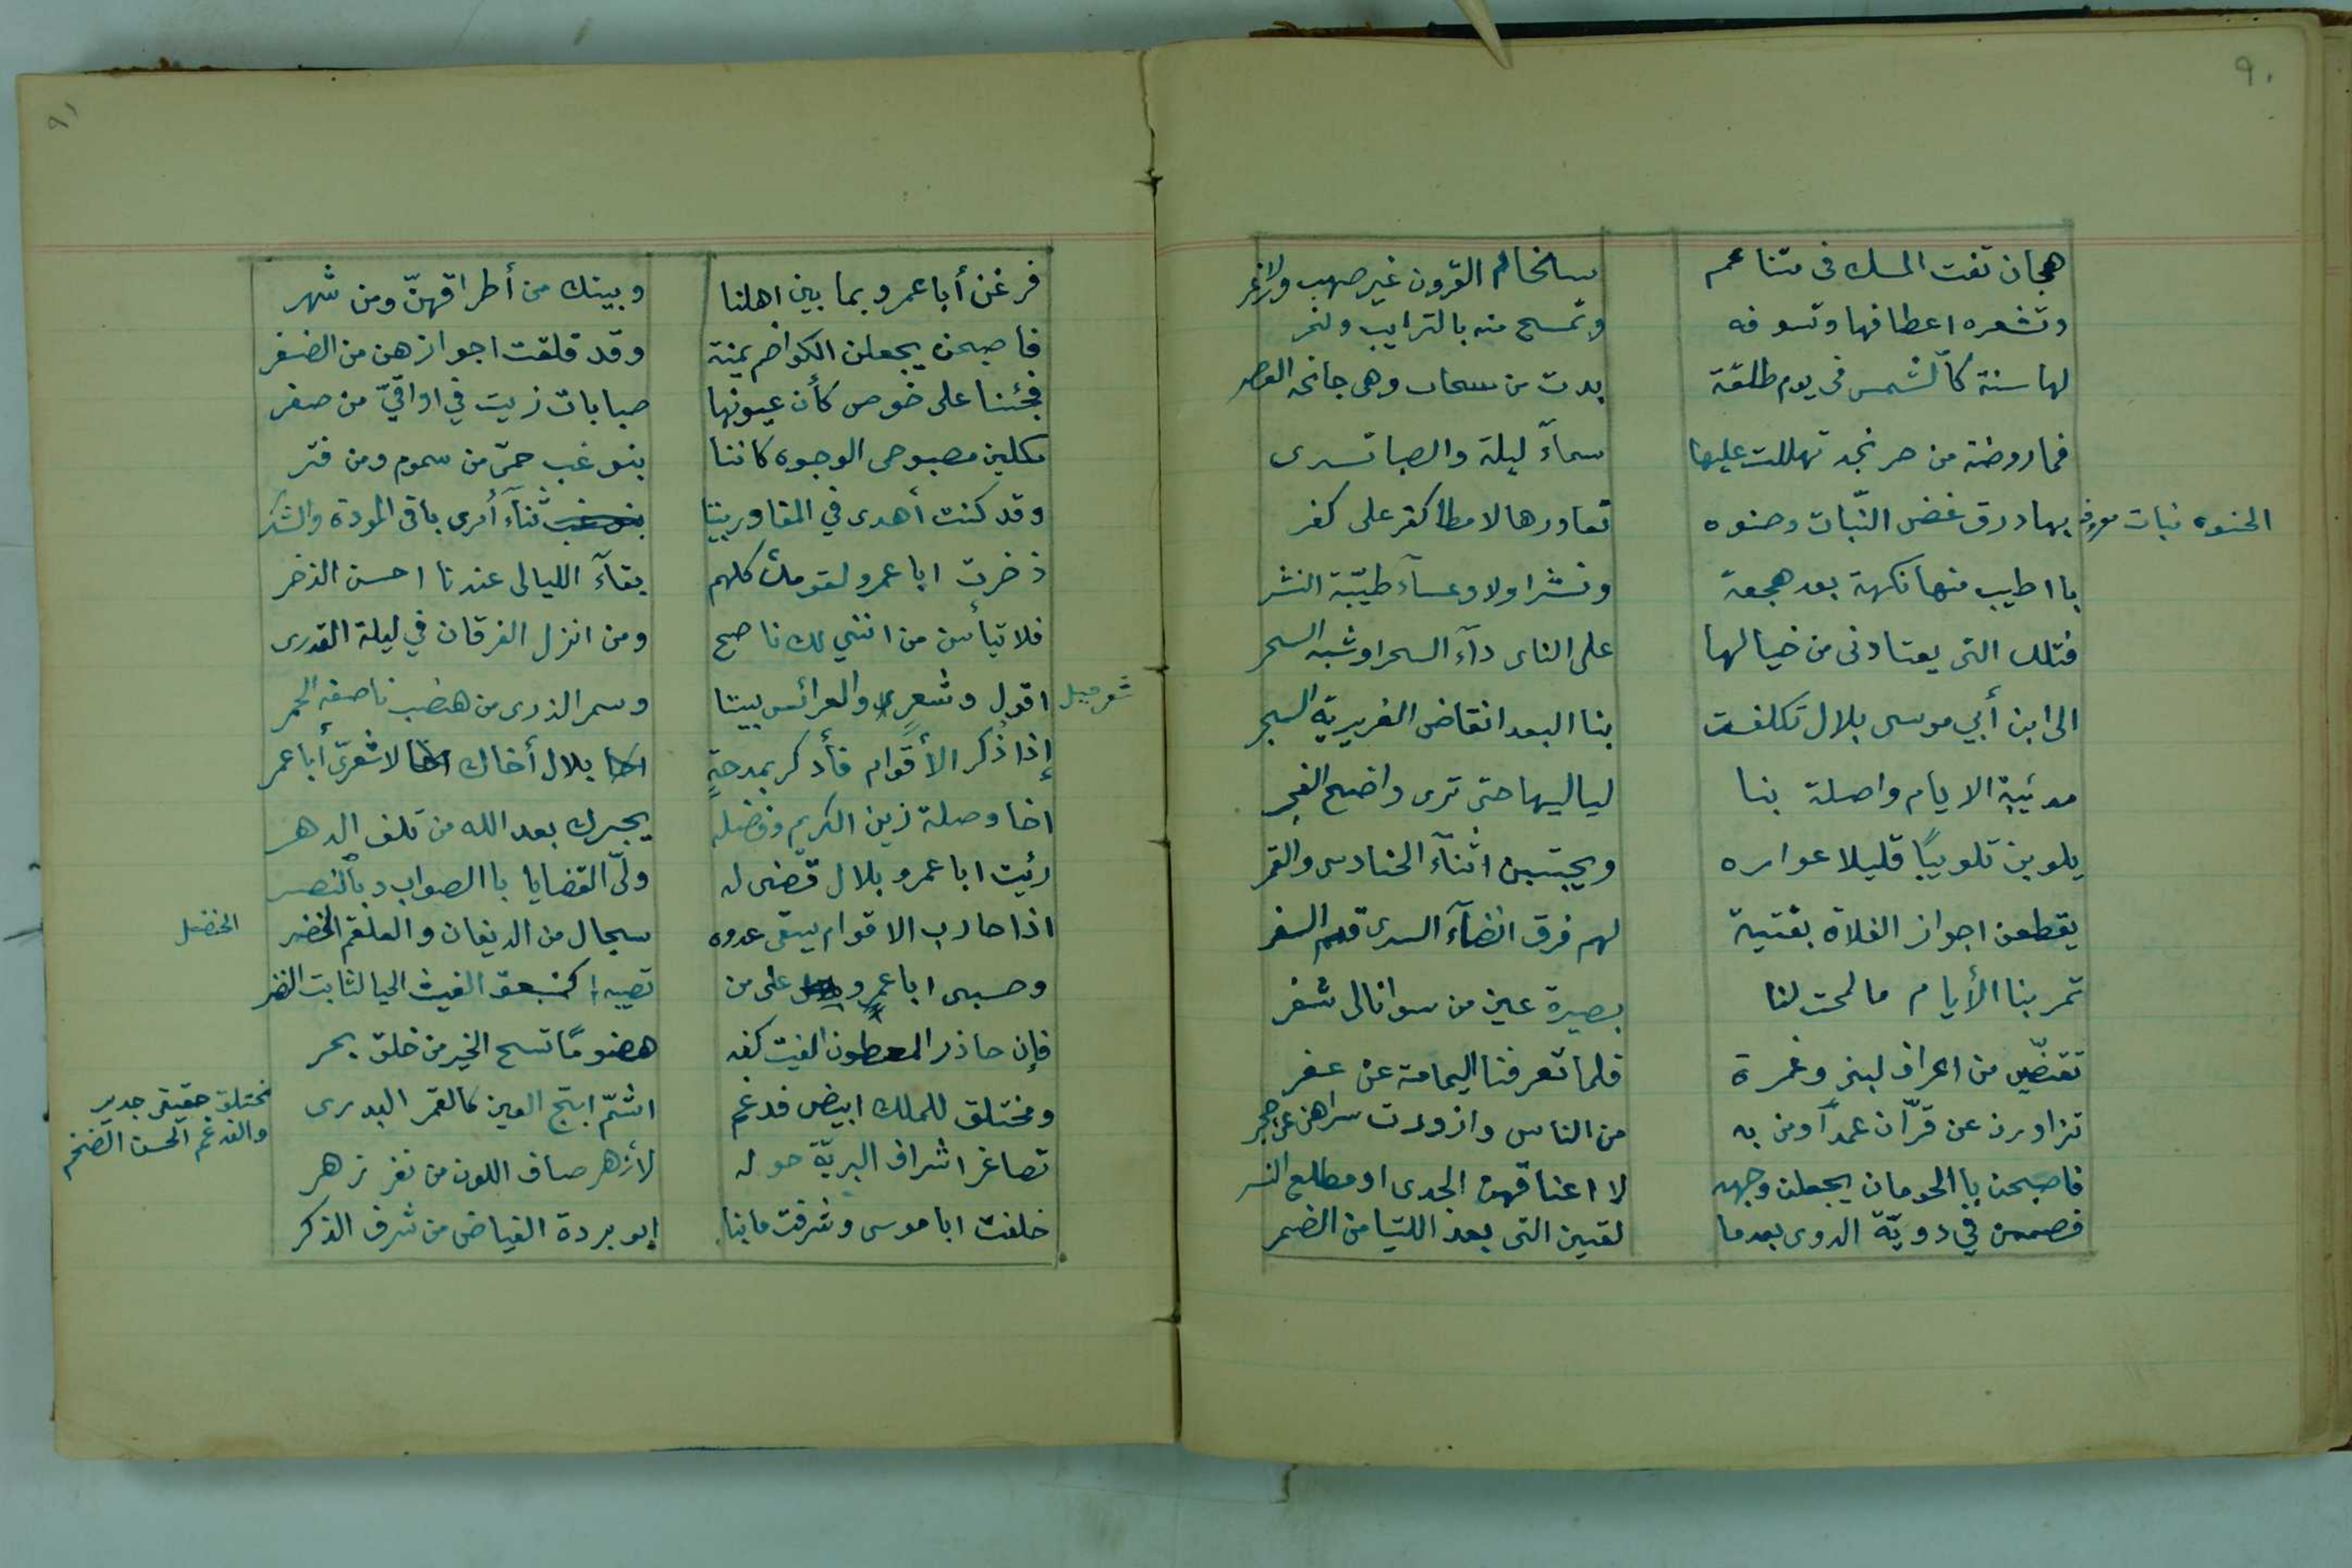 ٩٠
هجان تفت المسك في متناعم سخام القرون غير صهب ولا زعر
وتشعره اعطافها وتسوفه وتمسح منه بالترايب والنحر
لها سنة كالشمس في يوم طلقة بدت من سحاب وهي جانحة العصر
فما روضة من حر نجد تهللت عليها سماء ليلة والصبا تسرى
الحنوه نبات معروف
بها درق غض النّبات وحنوه تعاورها الامطار كفر على كفر
با اطيب منها نكهة بعد هجعة ونشرا ولا وعسآء طيّبة النشر
فتلك التى يعتادنى من خيالها على الناى دآء السحر او شبه السحر
الى ابن أبي موسى بلال تكلفت بنا البعد انقاض الغريرية السجر
مدئيبة الايام واصلة بنا لياليها حتى ترى واضح الفجر
يلوبن تلويبًا قليلا عواره ويجتبن اثنآء الحنادس والقمر
يقطعن اجواز الفلاة بفتية لهم فرق انضآء السرى قدم السفر
تمر بنا الأيام مالمحت لنا بصيرة عين من سوانا لى شفر
تقضّين من اعراف لبنى وغمرة فلما تعرفنا اليمامة عن عفر
تزاورن عن قرّان عمدًا ومن به من الناس وازورت سراهن عن حجر
فاصبحن با الحومان يجعلن وجهه لا اعناقهن الجدى او مطلع النسر
فصممن في دويّة الدوى بعدما لقين التى بعد اللتيا من الضمر
٩١
فرغن أبا عمرو بما بين اهلنا وبينك من أطراقهنّ ومن شهر
فاصبحن يجعلن الكواضم يمنة وقد قلقت اجوازهن من الضفر
فجئنا على خوص كأن عيونها صبابات زيت في اواقيّ من صفر
مكلين مصبوحى الوجوه كاننا بنو غب حمّى من سموم ومن فتر
وقد كنت أهدى في المقاوربيننا ثنآء أمرى باقى المودة والشكر
ذخرت ابا عمرو لقومك كلهم بقآء الليالى عندنا احسن الذخر
فلا تيأس من انني لك ناصح ومن انزل الفرقان في ليلة القدرى
شعر جبل
اقول وشعرٍ والعرائس بيننا وسمر الذرى من هضب ناصفة الحمر
إذا ذُكر الأقوام فأذكر بمدحةٍ بلال أخاك الاشعرىّ أبا عمر
اخا وصلة زين الكريم وفضله يجيرك بعد الله من تلف الدهر
رئيت ابا عمرو بلال قضى له ولّى القضايا با الصواب وبالنصر
اذا حارب الاقوام يسقى عدوه سجال من الديفان والعلقم الخضر
الحنضل
وحسبى ابا عمرو على من تصيبه كمنبعق الغيث الحيا لثابت النضر
فإن حاذر المعطون الفيت كفه هضومًا تسح الخير من خلق بحر
ومختلق للملك ابيض فدغم اشمّ ابتج العين كالقمر البدرى
مختلق حقيقى جدير
والفدغم الحسن الضخم
تصاغر اشراف البريّة حوله لأزهر صاف اللون من نفر زهر
خلفت ابا موسى وشرفت ما بنا ابو بردة الفياض من شرف الذكر